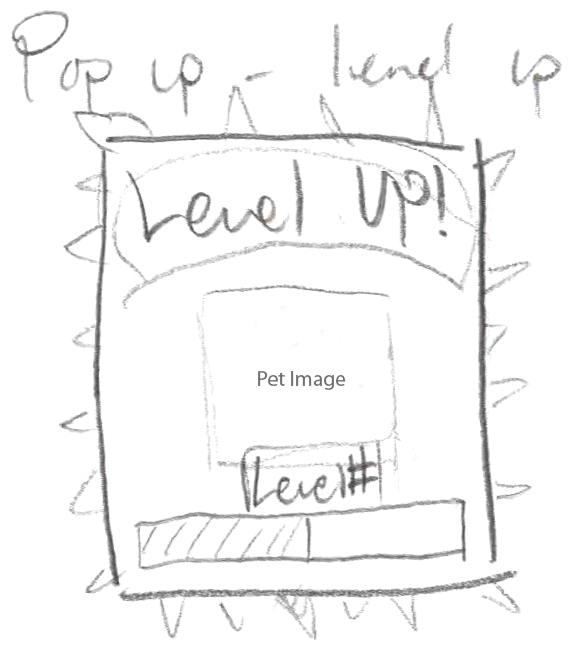 Pop up - Level up
Level UP!
Pet Image
Level#